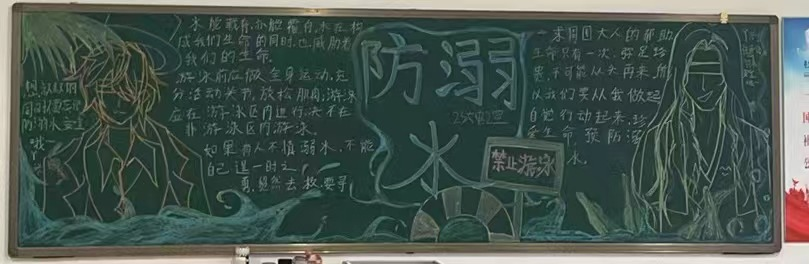 水能载舟,亦能覆舟,水在构
成我们生命的同时,也威胁着
我们的生命。
游泳前应做全身运动,充
分活动关节,放松肌肉,游泳
应在游泳区内进行,决不在
非游泳区内游泳。
如果有人不慎溺水,不能
自己逞一时之
勇,贸然去救,要寻
防溺
水
禁止游泳
求周围大人的帮助
生命只有一次,弥足珍
贵,不可能从头再来,所
以我们要从我做起
自觉行动起来,珍
爱生命 预防溺
水。